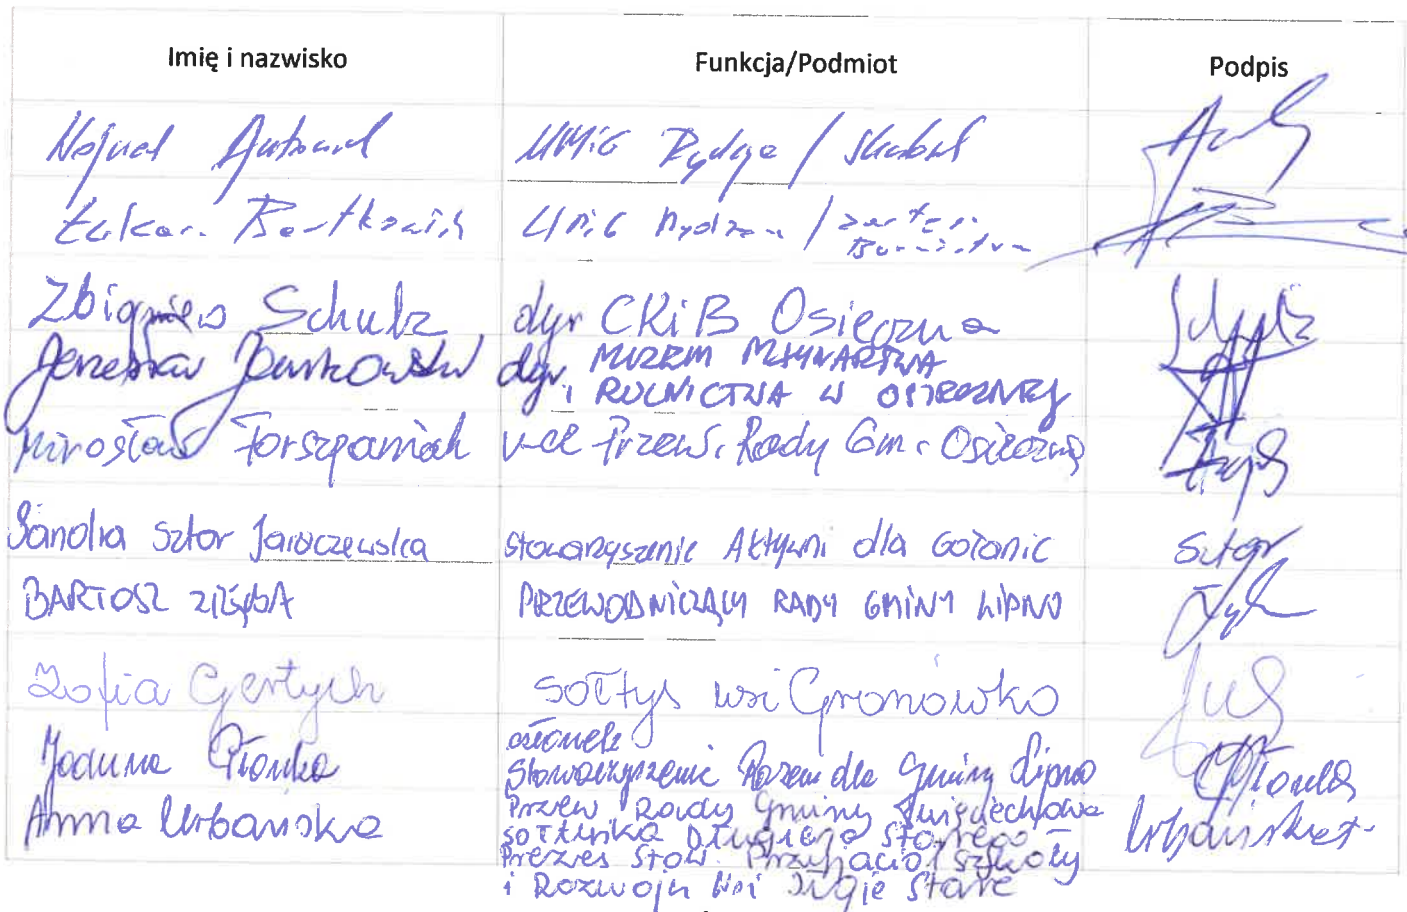 Imię i nazwisko Funkcja/Podmiot Podpis
UMiG / 
Łukasz Bartkowiak UMiG Rydzyna / Zastęp.
Burmistrza
Zbigniew Schulz dyr CKiB Osieczna
Jarosław Jankowski dyr. MUZEUM MŁYNARSTWA
i ROLNICTWA W OSIECZNEJ
Mirosław V-ce Przew. Rady Gm. Osieczna
Sandra Sztor Jaroczewska Stowarzyszenie Aktywni dla Gołanic Sztor
BARTOSZ ZIĘBA PRZEWODNICZĄCY RADY GMINY LIPNO
Zofia Gertych sołtys wsi Gronówko
członek
Joanna Płonka Stowarzyszenie Razem dla Gminy Lipno Płonka
Anna Urbańska Przew Rady Gminy Święciechowa Urbańska
sołtyska Długiego Starego
Prezes Stow. Przyjaciół Szkoły
i Rozwoju Wsi Długie Stare